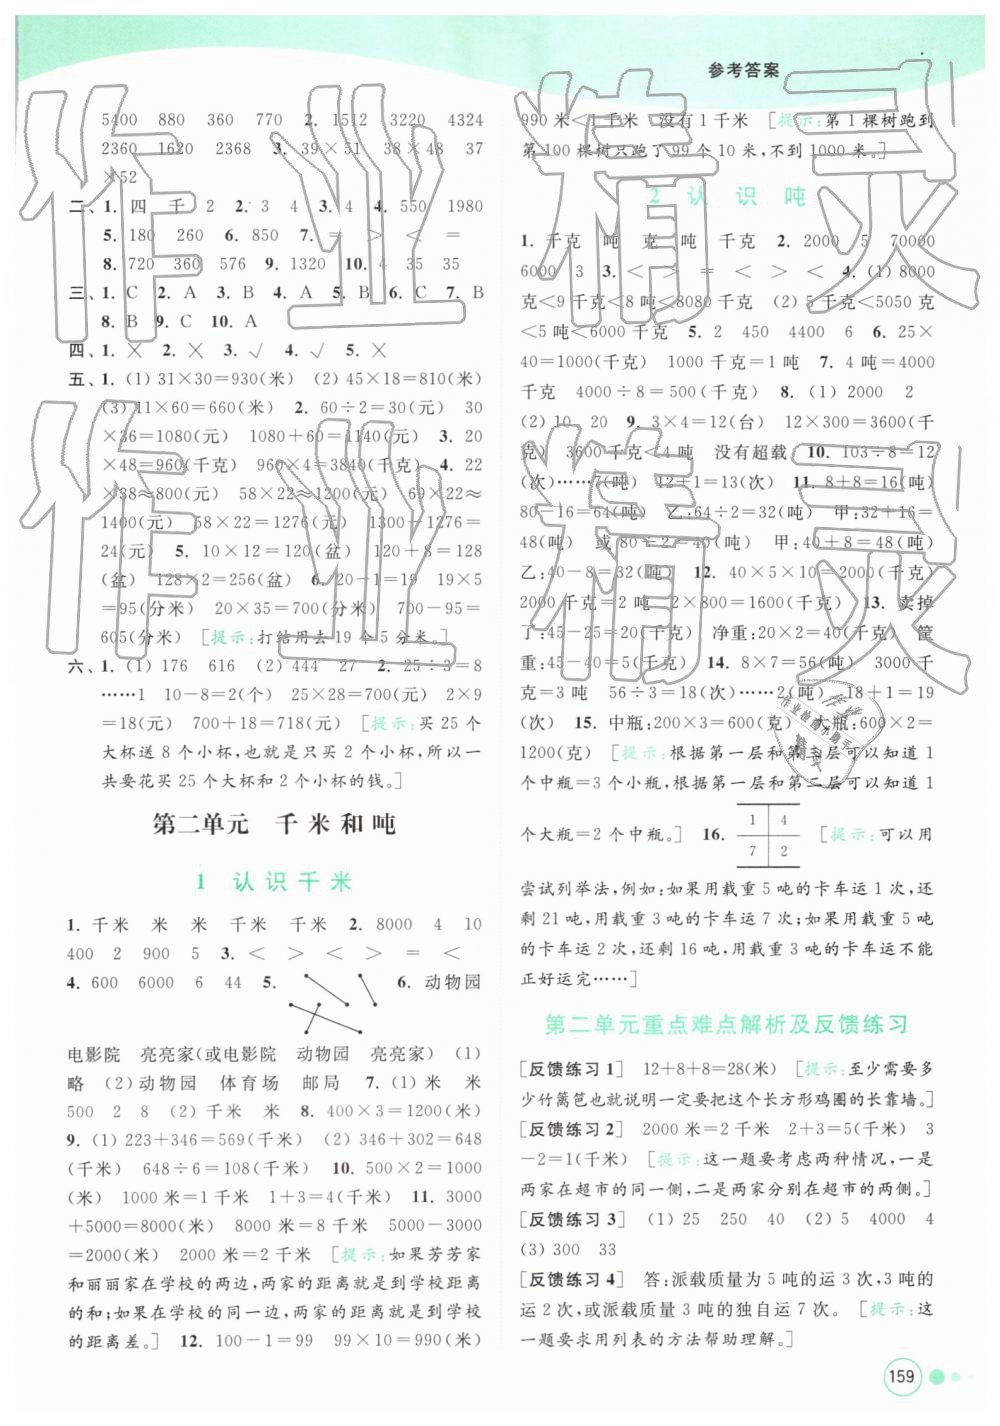 参考答案
5400 880 360 770 2. 1512 3220 4324
2360 1620 2368 3. 39×51 38×48 37
×52
二、1. 四 千 2 2. 3 4 3. 4 4. 550 1980
5. 180 260 6. 850 7. = > < =
8. 720 360 576 9. 1320 10. 4 35 35
三、1. C 2. A 3. B 4. A 5. B 6. C 7. B
8. B 9. C 10. A
四、1. × 2. × 3. √ 4. √ 5. ×
五、1. (1) 31×30=930(米) (2) 45×18=810(米)
(3) 11×60=660(米) 2. 60÷2=30(元) 30
×36=1080(元) 1080+60=1140(元) 3. 20
×48=960(千克) 960×4=3840(千克) 4. 22
×38≈800(元) 58×22≈1200(元) 69×22≈
1400(元) 58×22=1276(元) 1300-1276=
24(元) 5. 10×12=120(盆) 120+8=128
(盆) 128×2=256(盆) 6. 20-1=19 19×5
=95(分米) 20×35=700(分米) 700-95=
605(分米) [提示:打结用去 19 个 5 分米。]
六、1. (1) 176 616 (2) 444 27 2. 25÷3=8
……1 10-8=2(个) 25×28=700(元) 2×9
=18(元) 700+18=718(元) [提示:买 25 个
大杯送 8 个小杯,也就是只买 2 个小杯,所以一
共要花买 25 个大杯和 2 个小杯的钱。]
第二单元 千米和吨
1 认识千米
1. 千米 米 米 千米 千米 2. 8000 4 10
400 2 900 5 3. < > < > = <
4. 600 6000 6 44 5. 6. 动物园
电影院 亮亮家(或电影院 动物园 亮亮家) (1)
略 (2) 动物园 体育场 邮局 7. (1) 米 米
500 2 8 (2) 千米 米 8. 400×3=1200(米)
9. (1) 223+346=569(千米) (2) 346+302=648
(千米) 648÷6=108(千米) 10. 500×2=1000
(米) 1000 米=1 千米 1+3=4(千米) 11. 3000
+5000=8000(米) 8000 米=8 千米 5000-3000
=2000(米) 2000 米=2 千米 [提示:如果芳芳家
和丽丽家在学校的两边,两家的距离就是到学校距离
的和;如果在学校的同一边,两家的距离就是到学校
的距离差。] 12. 100-1=99 99×10=990(米)
990 米<1 千米 没有 1 千米 [提示:第 1 棵树跑到
第 100 棵树只跑了 99 个 10 米,不到 1000 米。]
2 认识吨
1. 千克 吨 克 吨 千克 2. 2000 5 70000
6000 3 3. < > = < > < 4. (1) 8000
克<9 千克<8 吨<8080 千克 (2) 5 千克<5050 克
<5 吨<6000 千克 5. 2 450 4400 6 6. 25×
40=1000(千克) 1000 千克=1 吨 7. 4 吨=4000
千克 4000÷8=500(千克) 8. (1) 2000 2
(2) 10 20 9. 3×4=12(台) 12×300=3600(千
克) 3600 千克<4 吨 没有超载 10. 103÷8=12
(次)……7(吨) 12+1=13(次) 11. 8+8=16(吨)
80-16=64(吨) 乙:64÷2=32(吨) 甲:32+16=
48(吨) 或 80÷2=40(吨) 甲:40+8=48(吨)
乙:40-8=32(吨) 12. 40×5×10=2000(千克)
2000 千克=2 吨 2×800=1600(千克) 13. 卖掉
了:45-25=20(千克) 净重:20×2=40(千克) 筐
重:45-40=5(千克) 14. 8×7=56(吨) 3000 千
克=3 吨 56÷3=18(次)……2(吨) 18+1=19
(次) 15. 中瓶:200×3=600(克) 大瓶:600×2=
1200(克) [提示:根据第一层和第三层可以知道 1
个中瓶=3 个小瓶,根据第一层和第二层可以知道 1
个大瓶=2 个中瓶。] 16. [提示:可以用
1 4
7 2
尝试列举法,例如:如果用载重 5 吨的卡车运 1 次,还
剩 21 吨,用载重 3 吨的卡车运 7 次;如果用载重 5 吨
的卡车运 2 次,还剩 16 吨,用载重 3 吨的卡车不能
正好运完……]
第二单元重点难点解析及反馈练习
[反馈练习 1] 12+8+8=28(米) [提示:至少需要多
少竹篱笆也就说明一定要把这个长方形鸡圈的长靠墙。]
[反馈练习 2] 2000 米=2 千米 2+3=5(千米) 3
-2=1(千米) [提示:这一题要考虑两种情况,一是
两家在超市的同一侧,二是两家分别在超市的两侧。]
[反馈练习 3] (1) 25 250 40 (2) 5 4000 4
(3) 300 33
[反馈练习 4] 答:派载质量为 5 吨的运 3 次,3 吨的
运 2 次,或派载质量 3 吨的独自运 7 次。 [提示:这
一题要求用列表的方法帮助理解。]
159
作业精灵
作业精灵